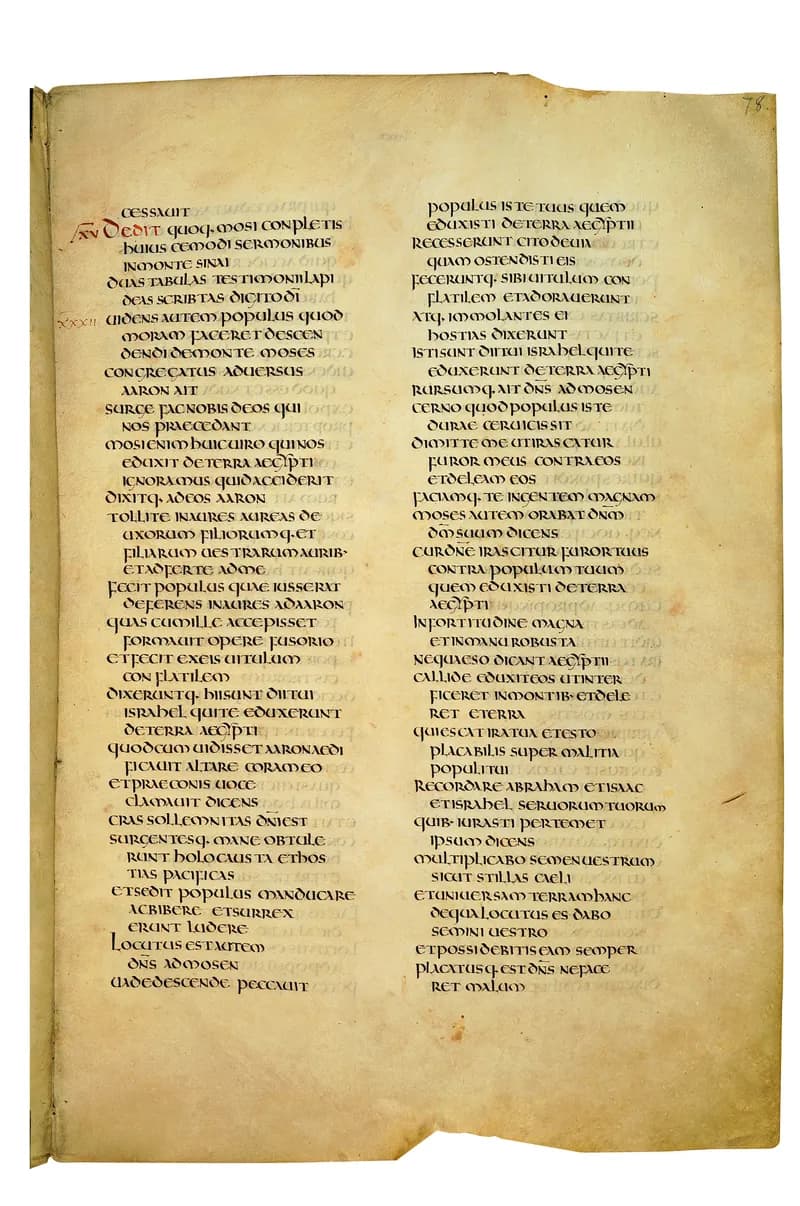 78
CESSAUIT
XXV DEDIT QUOQ· MOSI CONPLETIS
HUIUS CEMODI SERMONIBUS
INMONTE SINAI
DUAS TABULAS TESTIMONII LAPI
DEAS SCRIBTAS DIGITO DĪ
XXXII UIDENS AUTEM POPULUS QUOD
MORAM FACERET DESCEN
DENDI DE MONTE MOSES
CONGREGATUS ADUERSUS
AARON AIT
SURGE FAC NOBIS DEOS QUI
NOS PRAECEDANT
MOSI ENIM HUIC UIRO QUI NOS
EDUXIT DE TERRA AEGYPTI
IGNORAMUS QUID ACCIDERIT
DIXITQ· AD EOS AARON
TOLLITE INAURES AUREAS DE
UXORUM FILIORUMQ· ET
FILIARUM UESTRARUM AURIB·
ET ADFERTE AD ME
FECIT POPULUS QUAE IUSSERAT
DEFERENS INAURES AD AARON
QUAS CUM ILLE ACCEPISSET
FORMAUIT OPERE FUSORIO
ET FECIT EX EIS UITULUM
CONFLATILEM
DIXERUNTQ· HII SUNT DII TUI
ISRAHEL QUI TE EDUXERUNT
DE TERRA AEGYPTI
QUOD CUM UIDISSET AARON AEDI
FICAUIT ALTARE CORAM EO
ET PRAECONIS UOCE
CLAMAUIT DICENS
CRAS SOLLEMNITAS DNI EST
SURGENTESQ· MANE OBTULE
RUNT HOLOCAUSTA ET HOS
TIAS PACIFICAS
ET SEDIT POPULUS MANDUCARE
AC BIBERE ET SURREX
ERUNT LUDERE
LOCUTUS EST AUTEM
DN̄S AD MOSEN
UADE DESCENDE PECCAUIT
POPULUS ISTE TUUS QUEM
EDUXISTI DE TERRA AEGYPTI
RECESSERUNT CITO DE UIA
QUAM OSTENDISTI EIS
FECERUNTQ· SIBI UITULUM CON
FLATILEM ET ADORAUERUNT
ATQ· IMMOLANTES EI
HOSTIAS DIXERUNT
ISTI SUNT DII TUI ISRAHEL QUI TE
EDUXERUNT DE TERRA AEGYPTI
RURSUMQ· AIT DN̄S AD MOSEN
CERNO QUOD POPULUS ISTE
DURAE CERUICIS SIT
DIMITTE ME UT IRASCATUR
FUROR MEUS CONTRA EOS
ET DELEAM EOS
FACIAMQ· TE IN GENTEM MAGNAM
MOSES AUTEM ORABAT DN̄M
DM̄ SUUM DICENS
CUR DN̄E IRASCITUR FUROR TUUS
CONTRA POPULUM TUUM
QUEM EDUXISTI DE TERRA
AEGYPTI
IN FORTITUDINE MAGNA
ET IN MANU ROBUSTA
NE QUAESO DICANT AEGYPTII
CALLIDE EDUXIT EOS UT INTER
FICERET IN MONTIB· ET DELE
RET E TERRA
QUIESCAT IRA TUA ET ESTO
PLACABILIS SUPER MALITIA
POPULI TUI
RECORDARE ABRAHAM ET ISAAC
ET ISRAHEL SERUORUM TUORUM
QUIB· IURASTI PER TEMET
IPSUM DICENS
MULTIPLICABO SEMEN UESTRUM
SICUT STILLAS CAELI
ET UNIUERSAM TERRAM HANC
DE QUA LOCUTUS ES DABO
SEMINI UESTRO
ET POSSIDEBITIS EAM SEMPER
PLACATUSQ· EST DN̄S NE FACE
RET MALUM